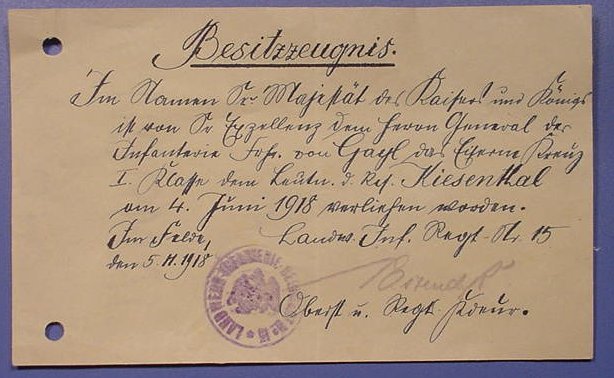 Besitzzeugnis.
Im Namen Sr. Majestät des Kaisers und Königs
ist von Sr Exzellenz dem Herrn General der
Infanterie Frhr. von Gayl das Eiserne Kreuz
I. Klasse dem Leutn. d. Res. Kiesenthal
am 4. Juni 1918 verliehen worden.
Im Felde,
Landw. Inf. Regt. Nr. 15
den 5. 11. 1918
Oberst u. Regts. Kdeur.
LANDWEHR-INFANTERIE-REGIMENT No 15